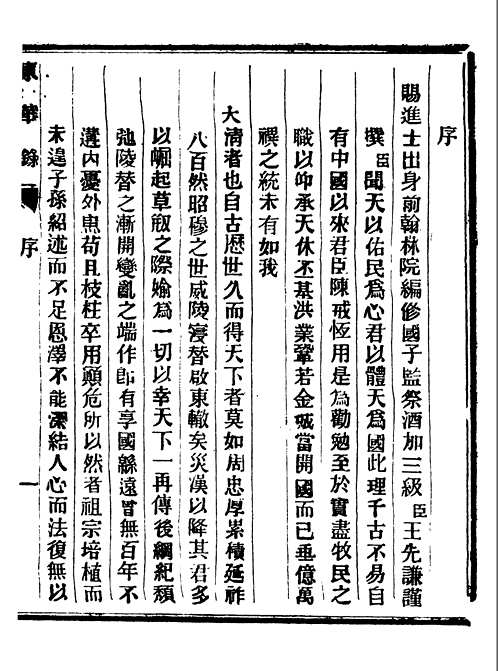 序
賜進士出身前翰林院編修國子監祭酒加三級臣王先謙謹
撰臣聞天以佑民爲心君以體天爲國此理千古不易自
有中國以來君臣陳戒恆用是為勸勉至於實盡牧民之
職以仰承天休丕基洪業鞏若金甌當開國而已垂億萬
禩之統未有如我
大清者也自古歷世久而得天下者莫如周忠厚累積延祚
八百然昭穆之世威陵寖替啟東轍矣災漢以降其君多
以崛起草叔之際婾為一切以幸天下一再傳後綱紀頹
弛陵替之漸開變亂之端作卽有享國緜遠曾無百年不
遘內憂外患苟且枝柱卒用顚危所以然者祖宗培植而
未遑子孫紹述而不足恩澤不能深結人心而法復無以
東華錄
序
一